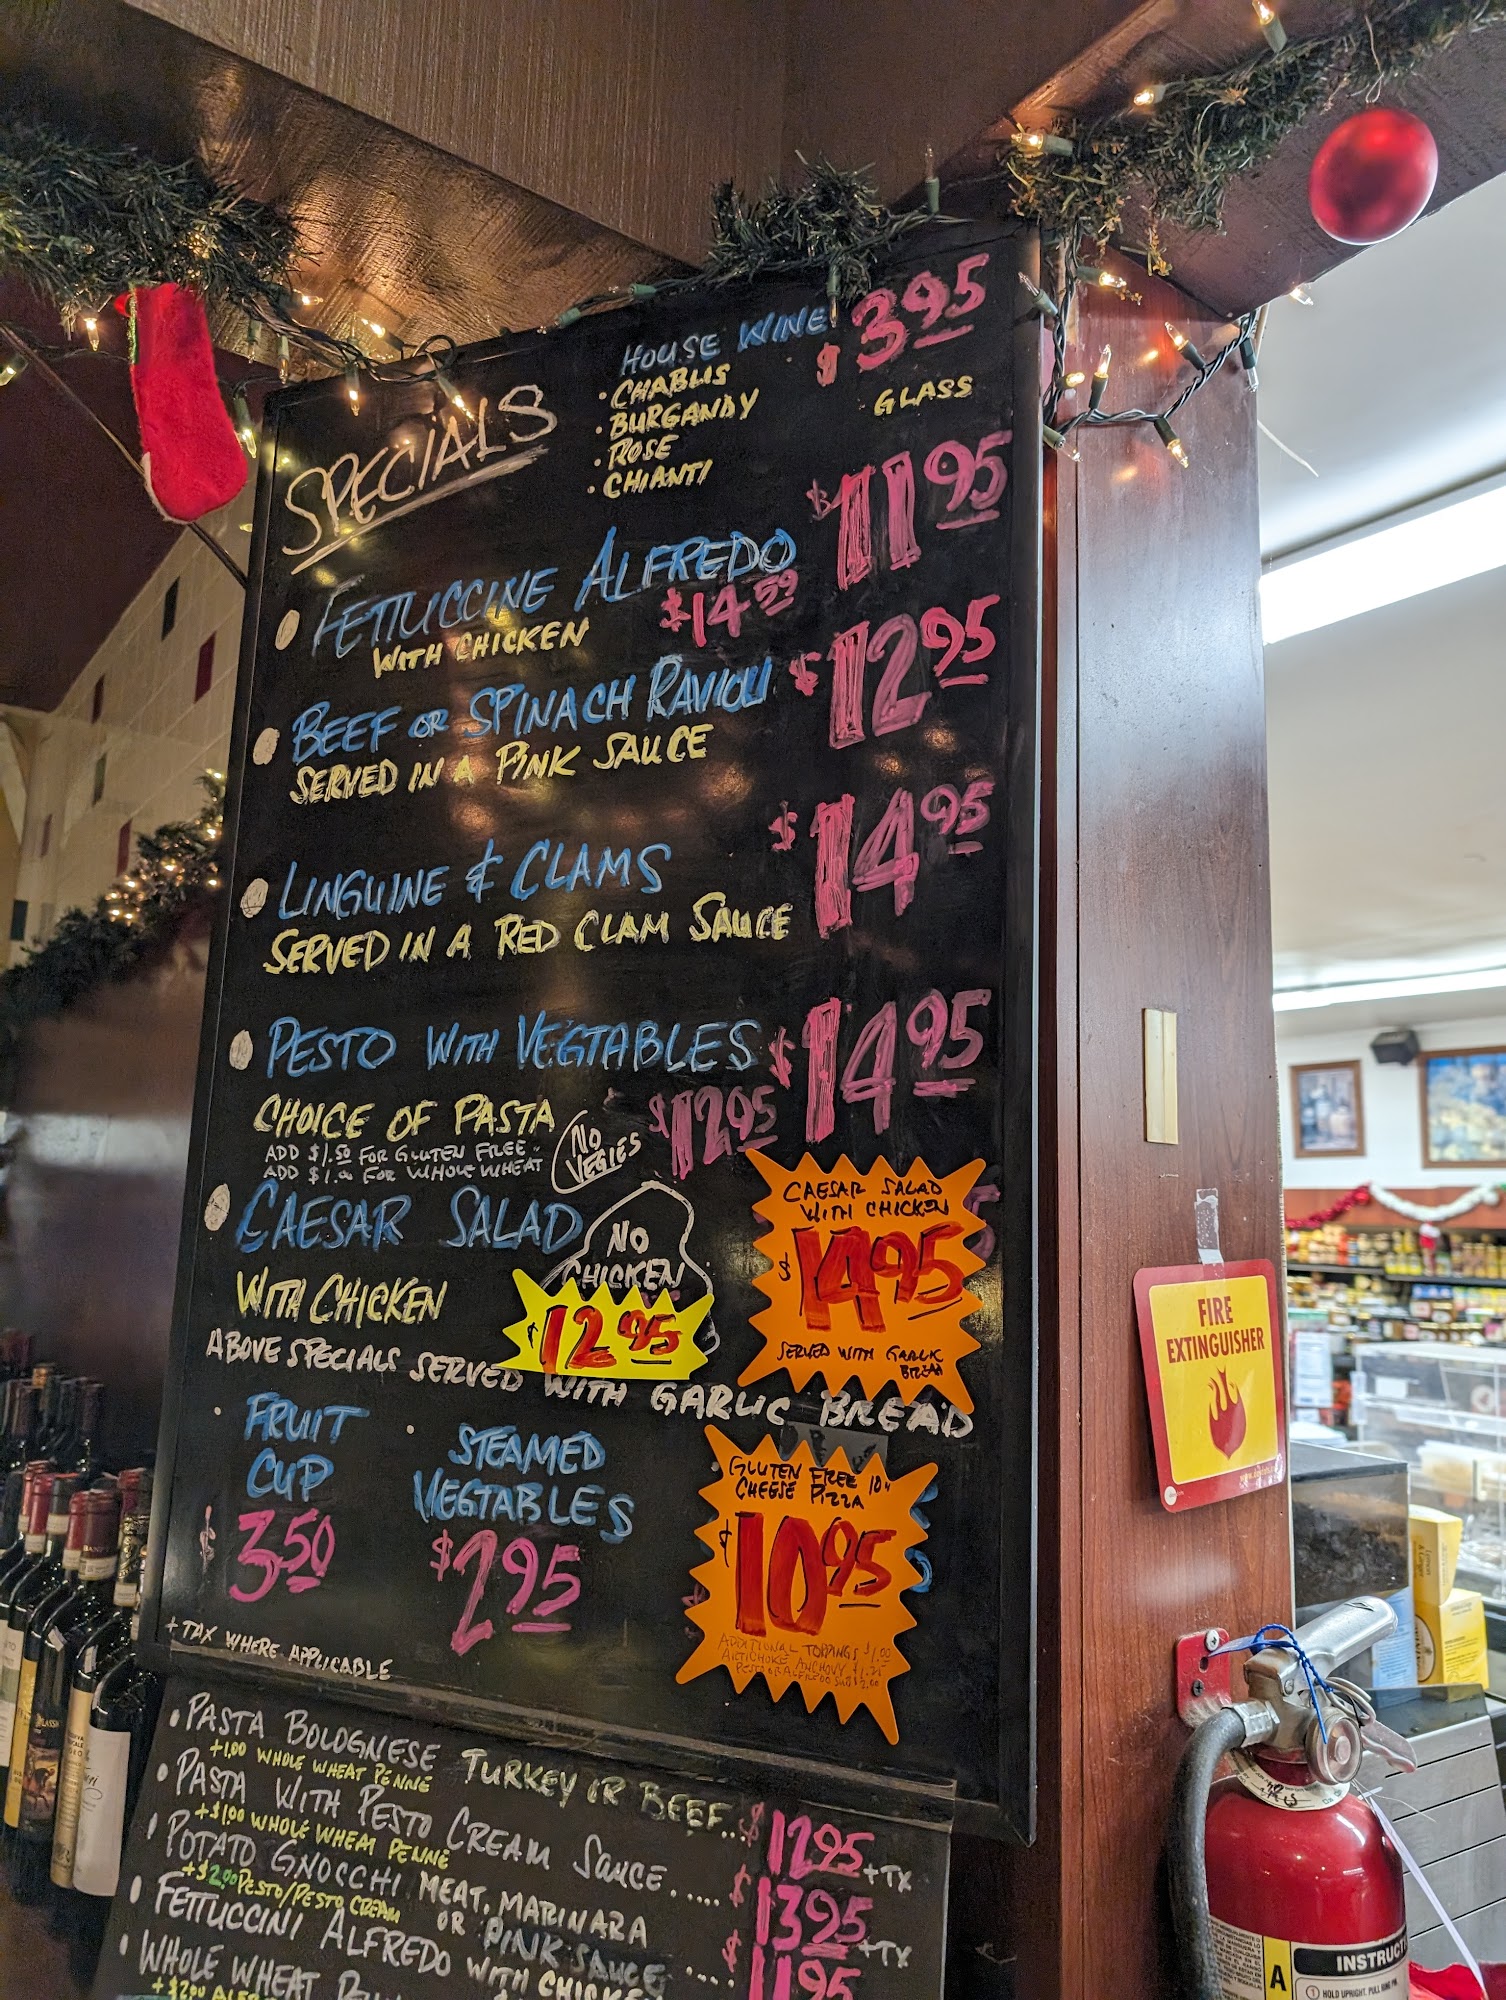 HOUSE WINE $3.95
• CHABLIS
GLASS
• BURGANDY
• ROSE
• CHIANTI
SPECIALS
FETTUCCINE ALFREDO $11.95
WITH CHICKEN $14.59
BEEF OR SPINACH RAVIOLI $12.95
SERVED IN A PINK SAUCE
LINGUINE & CLAMS $14.95
SERVED IN A RED CLAM SAUCE
PESTO WITH VEGTABLES $14.95
CHOICE OF PASTA NO VEGIES $12.95
ADD $1.50 FOR GLUTEN FREE
ADD $1.00 FOR WHOLE WHEAT
CAESAR SALAD
NO CHICKEN
$12.95
WITH CHICKEN
CAESAR SALAD
WITH CHICKEN
$14.95
SERVED WITH GARLIC
BREAD
ABOVE SPECIALS SERVED WITH GARLIC BREAD
• FRUIT
CUP
$3.50
• STEAMED
VEGTABLES
$2.95
GLUTEN FREE 10"
CHEESE PIZZA
$10.95
ADDITIONAL TOPPINGS $1.00
ARTICHOKE ANCHOVY $1.25
PESTO OR ALFREDO
+ TAX WHERE APPLICABLE
• PASTA BOLOGNESE TURKEY OR BEEF...$12.95+TX
+1.00 WHOLE WHEAT PENNE
• PASTA WITH PESTO CREAM SAUCE.....$13.95+TX
+$1.00 WHOLE WHEAT PENNE
• POTATO GNOCCHI MEAT, MARINARA
+$2.00 PESTO/PESTO CREAM OR PINK SAUCE....$11.95
• FETTUCCINI ALFREDO WITH
• WHOLE WHEAT
+$2.00
FIRE
EXTINGUISHER
A
HOLD UPRIGHT. PULL